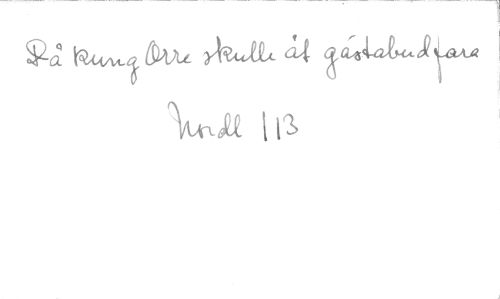 Då kung Orre skulle åt gästabud fara
Nordl 113